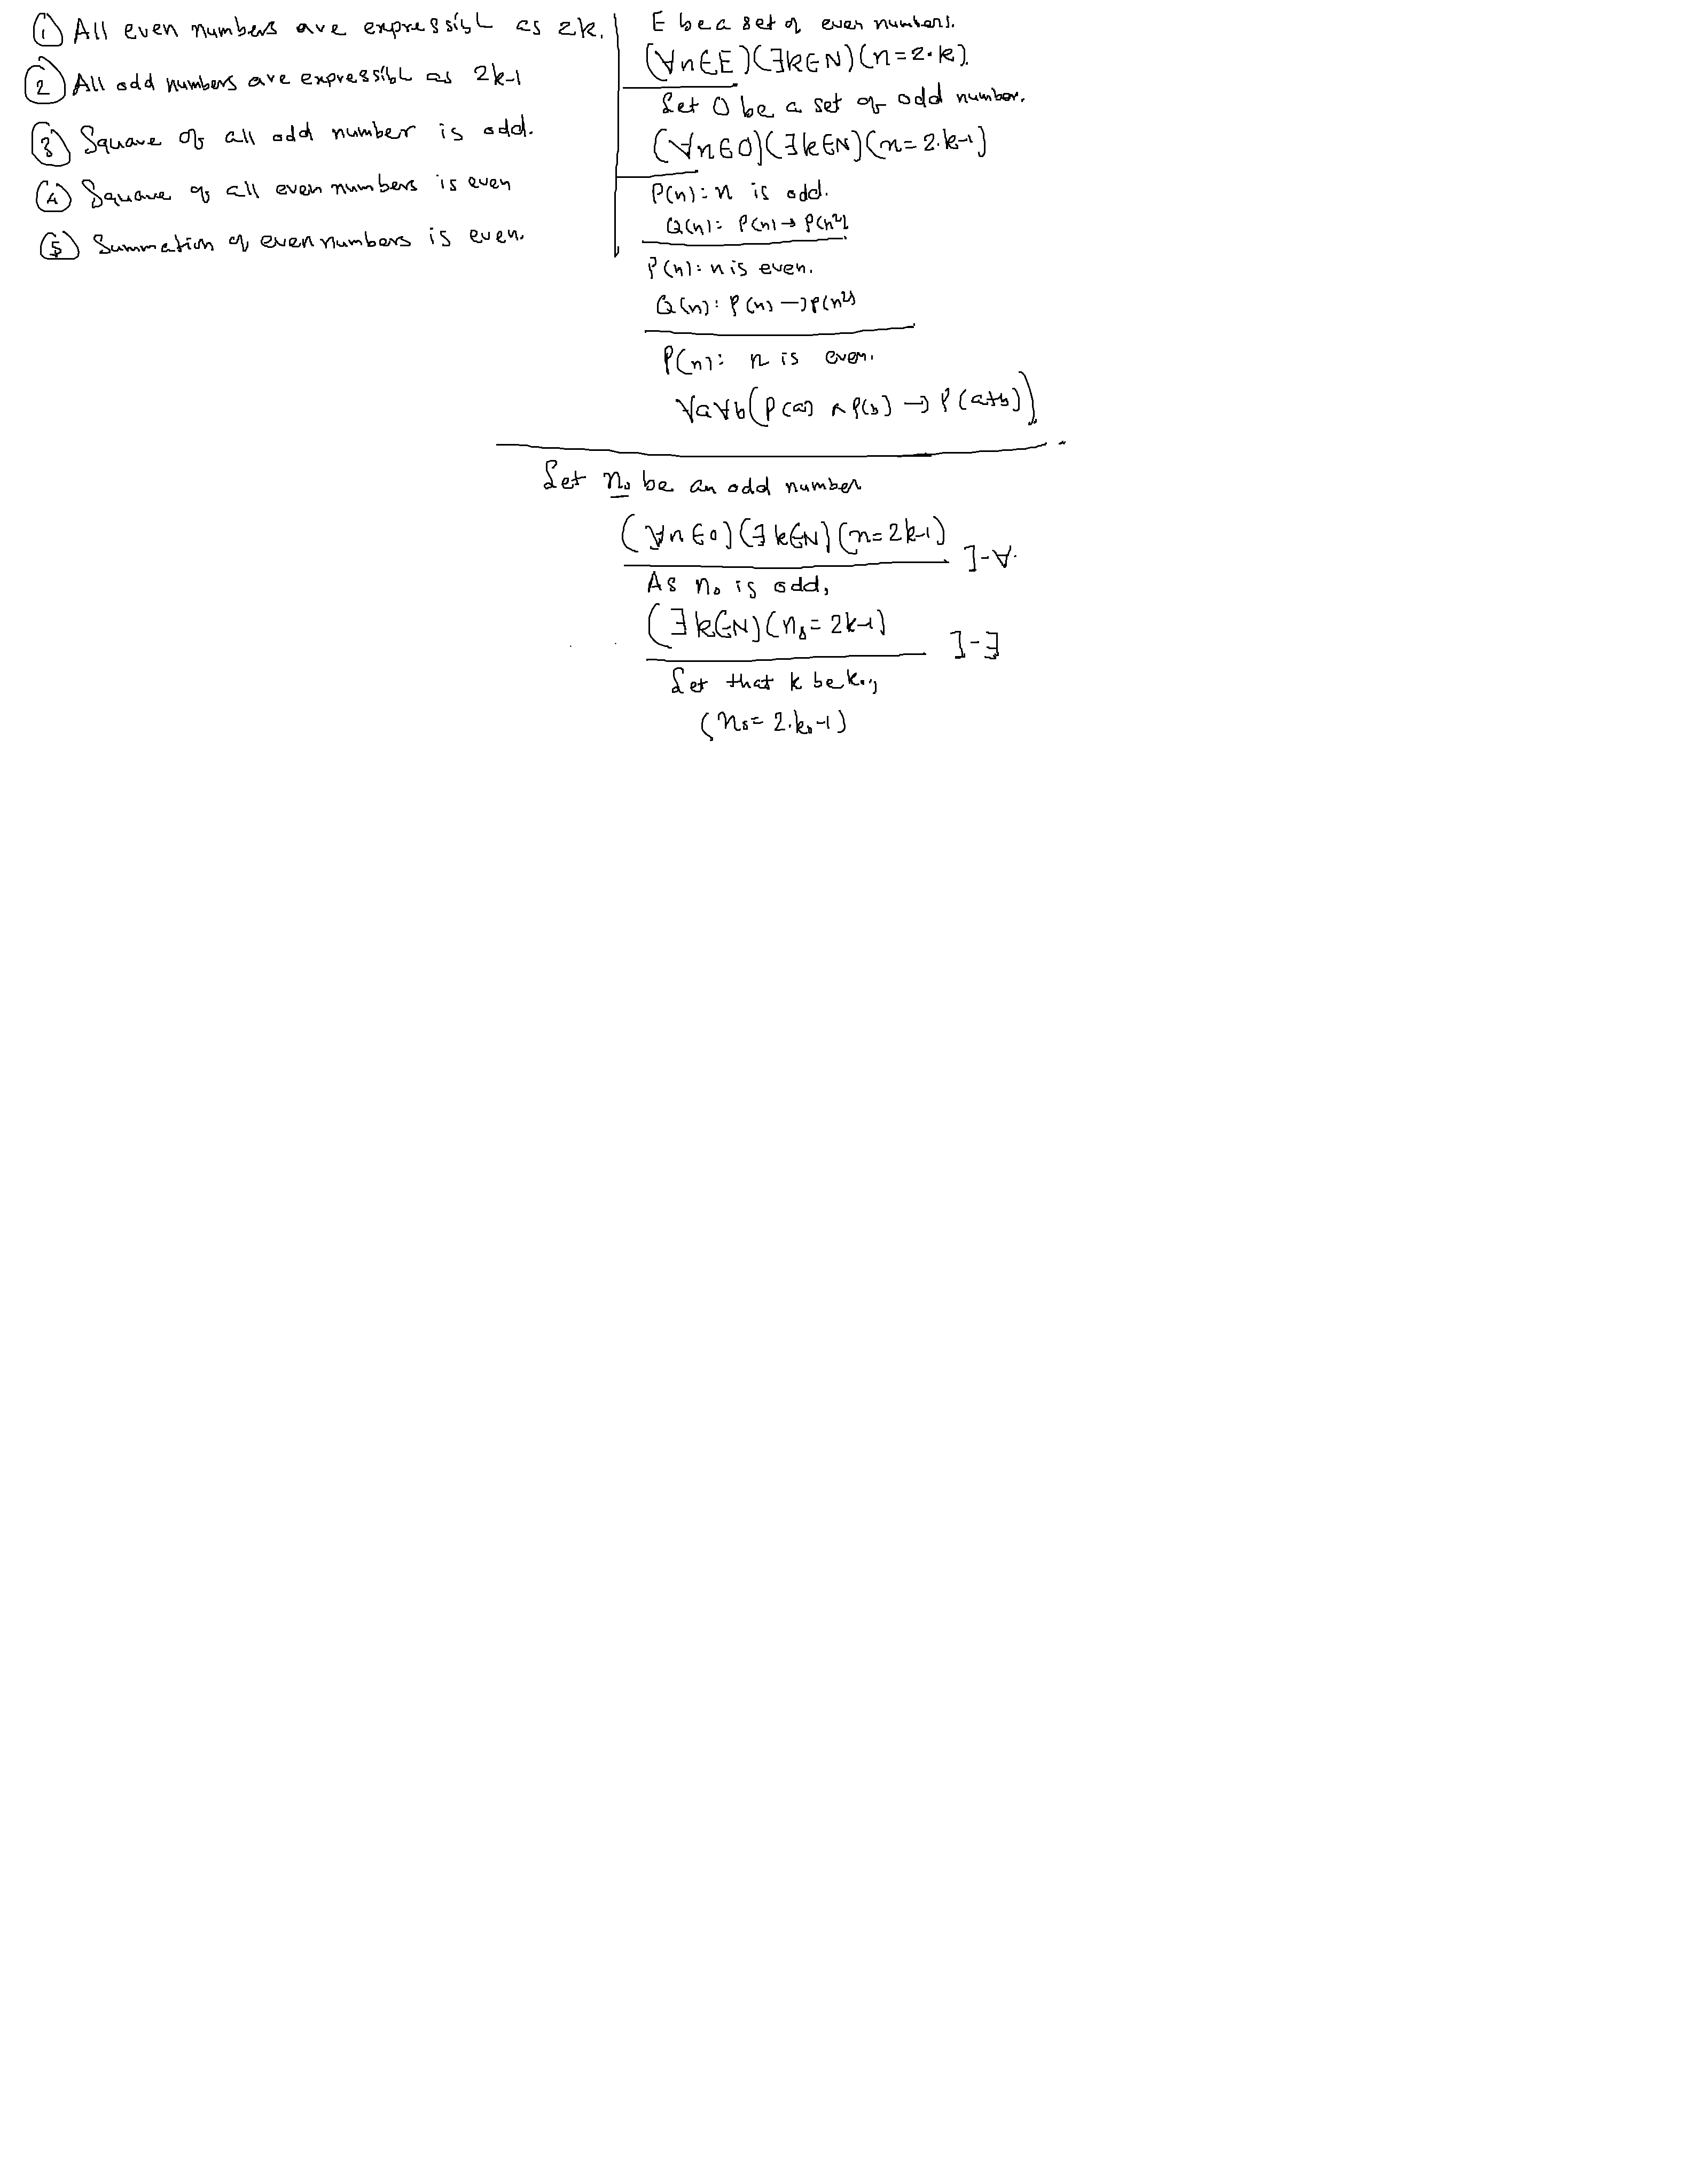 ① All even numbers are expressibl as 2k.
② All odd numbers are expressibl as 2k-1
③ Square of all odd number is odd.
④ Square of all even numbers is even
⑤ Summation of even numbers is even.
E be a set of even numbers.
(∀n∈E)(∃k∈N)(n=2·k).
Let O be a set of odd number.
(∀n∈O)(∃k∈N)(n=2·k-1)
P(n): n is odd.
Q(n): P(n)→P(n²)
P(n): n is even.
Q(n): P(n)→P(n²)
P(n): n is even.
∀a∀b(P(a)∧P(b)→P(a+b))
Let n₀ be an odd number
(∀n∈O)(∃k∈N)(n=2k-1)
]-∀.
As n₀ is odd,
(∃k∈N)(n₀=2k-1)
]-∃
Let that k be k₀,
(n₀=2·k₀-1)